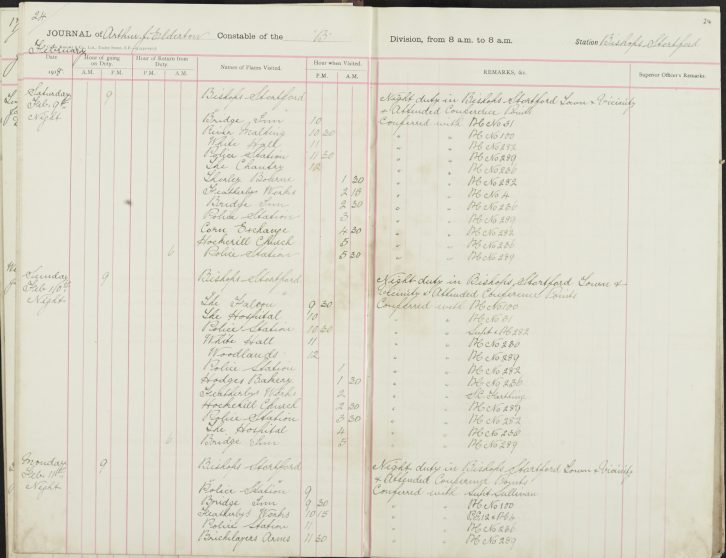 24
24
JOURNAL of Arthur J. Elderton Constable of the "B" Division, from 8 a.m. to 8 a.m. Station Bishops Stortford
February
Date 1918 Hour of going on Duty. A.M. P.M. Hour of Return from Duty P.M. A.M. Names of Places Visited. Hour when Visited. P.M. A.M. REMARKS, &c. Superior Officer's Remarks.
Saturday 9 Bishops Stortford Night duty in Bishops Stortford Town & Vicinity
Feb. 9th & Attended Conference Points
Night Bridge Inn 10 Conferred with PC No 31
10 30 " " PC No 100
White Hall 11 " " PC No 282
Police Station 11 30 " " PC No 289
The Chantry 12 " " PC No 236
Shirley Bourne 1 30 " " PC No 282
Featherbys Works 2 15 " " PC No 4
Bridge Inn 2 30 " " PC No 236
Police Station 3 " " PC No 289
Corn Exchange 4 30 " " PC No 282
Hockerill Church 5 " " PC No 236
6 Police Station 5 30 " " PC No 289
Sunday 9 Bishops Stortford Night duty in Bishops Stortford Town &
Feb. 10th Vicinity & Attended Conference Points
Night The Falcon 9 30 Conferred with PC No 100
The Hospital 10 " " PC No 31
Police Station 10 30 " " Supt & PC 282
White Hall 11 " " PC No 230
Woodlands 12 " " PC No 289
Police Station 1 " " PC No 282
Hodges Bakery 1 30 " " PC No 236
Featherbys Works 2 " "
Hockerill Church 2 30 " " PC No 289
Police Station 3 30 " " PC No 282
The Hospital 4 " " PC No 236
6 Bridge Inn 5 " " PC No 289
Monday 9 Bishops Stortford Night duty in Bishops Stortford Town & Vicinity
Feb. 11th & Attended Conference Points
Night Police Station 9 Conferred with Supt Sullivan
Bridge Inn 9 30 " " PC No 100
Featherbys Works 10 15 " "
Police Station " " PC No 236
Bricklayers Arms 11 30 " " PC No 289